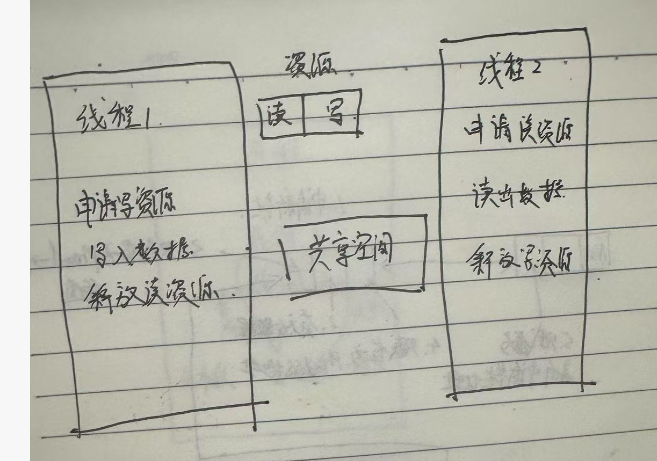 线程1
申请写资源
写入数据
释放读资源.
资源
读 写
共享空间
线程2
申请读资源
读出数据
释放写资源